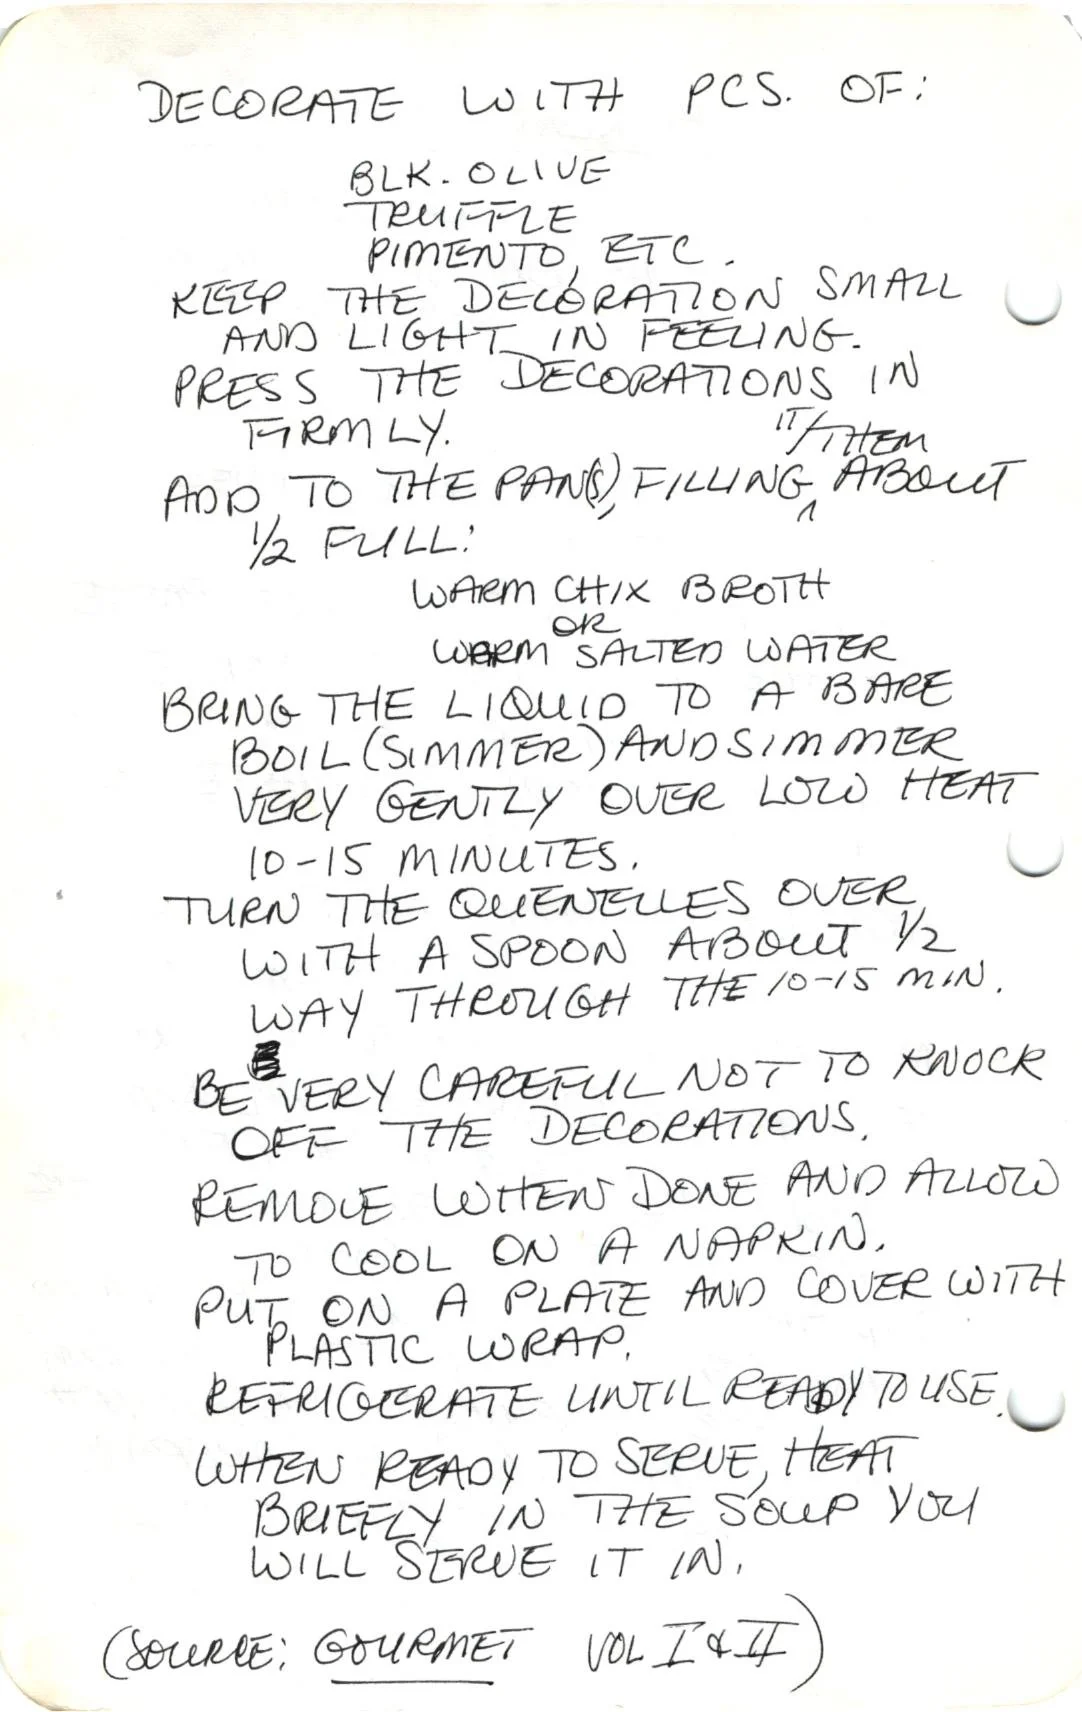 DECORATE WITH PCS. OF:
BLK. OLIVE
TRUFFLE
PIMENTO, ETC.
KEEP THE DECORATION SMALL
AND LIGHT IN FEELING.
PRESS THE DECORATIONS IN
FIRMLY.
IT/THEM
ADD, TO THE PAN(S), FILLING ^ ABOUT
1/2 FULL:
WARM CHIX BROTH
OR
WARM SALTED WATER
BRING THE LIQUID TO A BARE
BOIL (SIMMER) AND SIMMER
VERY GENTLY OVER LOW HEAT
10-15 MINUTES.
TURN THE QUENELLES OVER
WITH A SPOON ABOUT 1/2
WAY THROUGH THE 10-15 MIN.
BE VERY CAREFUL NOT TO KNOCK
OFF THE DECORATIONS.
REMOVE WHEN DONE AND ALLOW
TO COOL ON A NAPKIN.
PUT ON A PLATE AND COVER WITH
PLASTIC WRAP.
REFRIGERATE UNTIL READY TO USE.
WHEN READY TO SERVE, HEAT
BRIEFLY IN THE SOUP YOU
WILL SERVE IT IN.
(SOURCE: GOURMET VOL I & II)